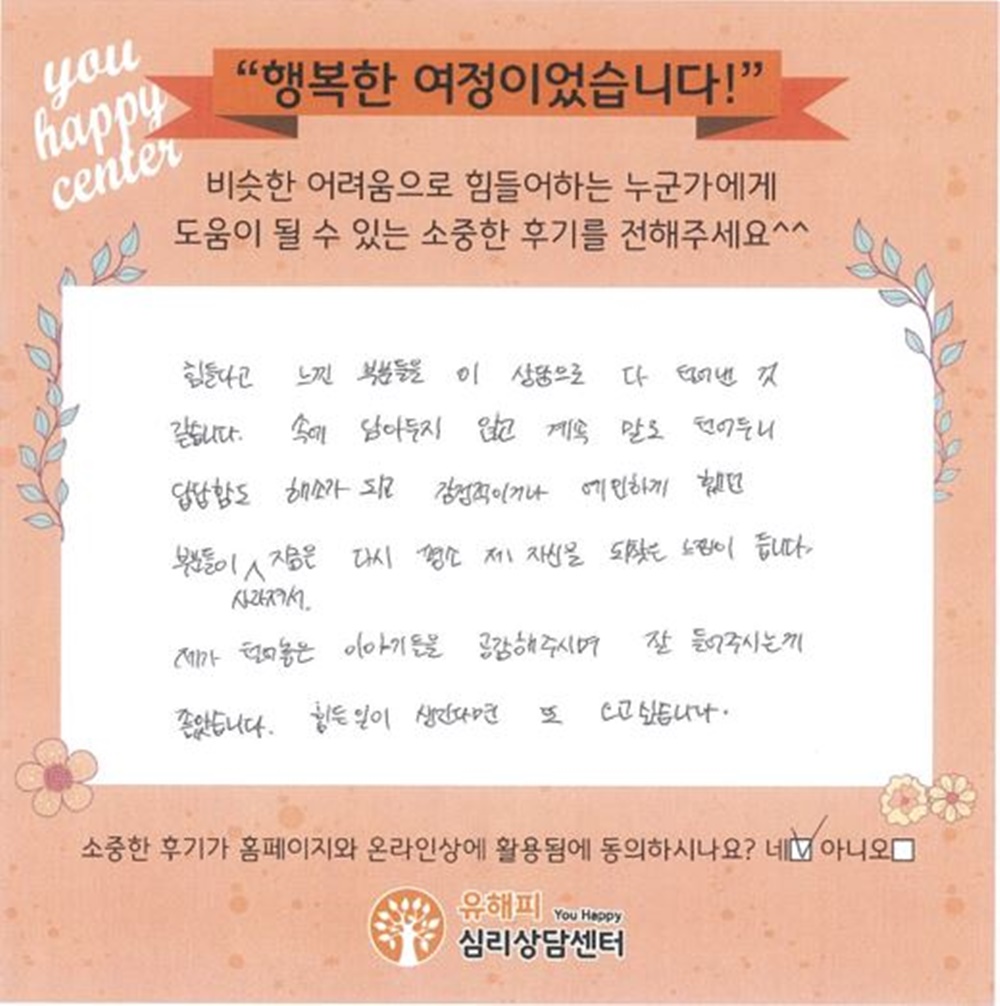 you
happy
center
“행복한 여정이었습니다!”
비슷한 어려움으로 힘들어하는 누군가에게
도움이 될 수 있는 소중한 후기를 전해주세요^^
힘들다고 느낀 부분들을 이 상담으로 다 털어낸 것
같습니다. 속에 담아두지 않고 계속 말로 털어두니
답답함도 해소가 되고 감정적이거나 예민하게 했던
부분들이 지금은 다시 평소 제 자신을 되찾은 느낌이 듭니다.
사라져서.
제가 털어놓은 이야기들을 공감해주시며 잘 들어주시는게
좋았습니다. 힘든일이 생긴다면 또 오고싶습니다.
소중한 후기가 홈페이지와 온라인상에 활용됨에 동의하시나요? 네 아니오
유해피 You Happy
심리상담센터